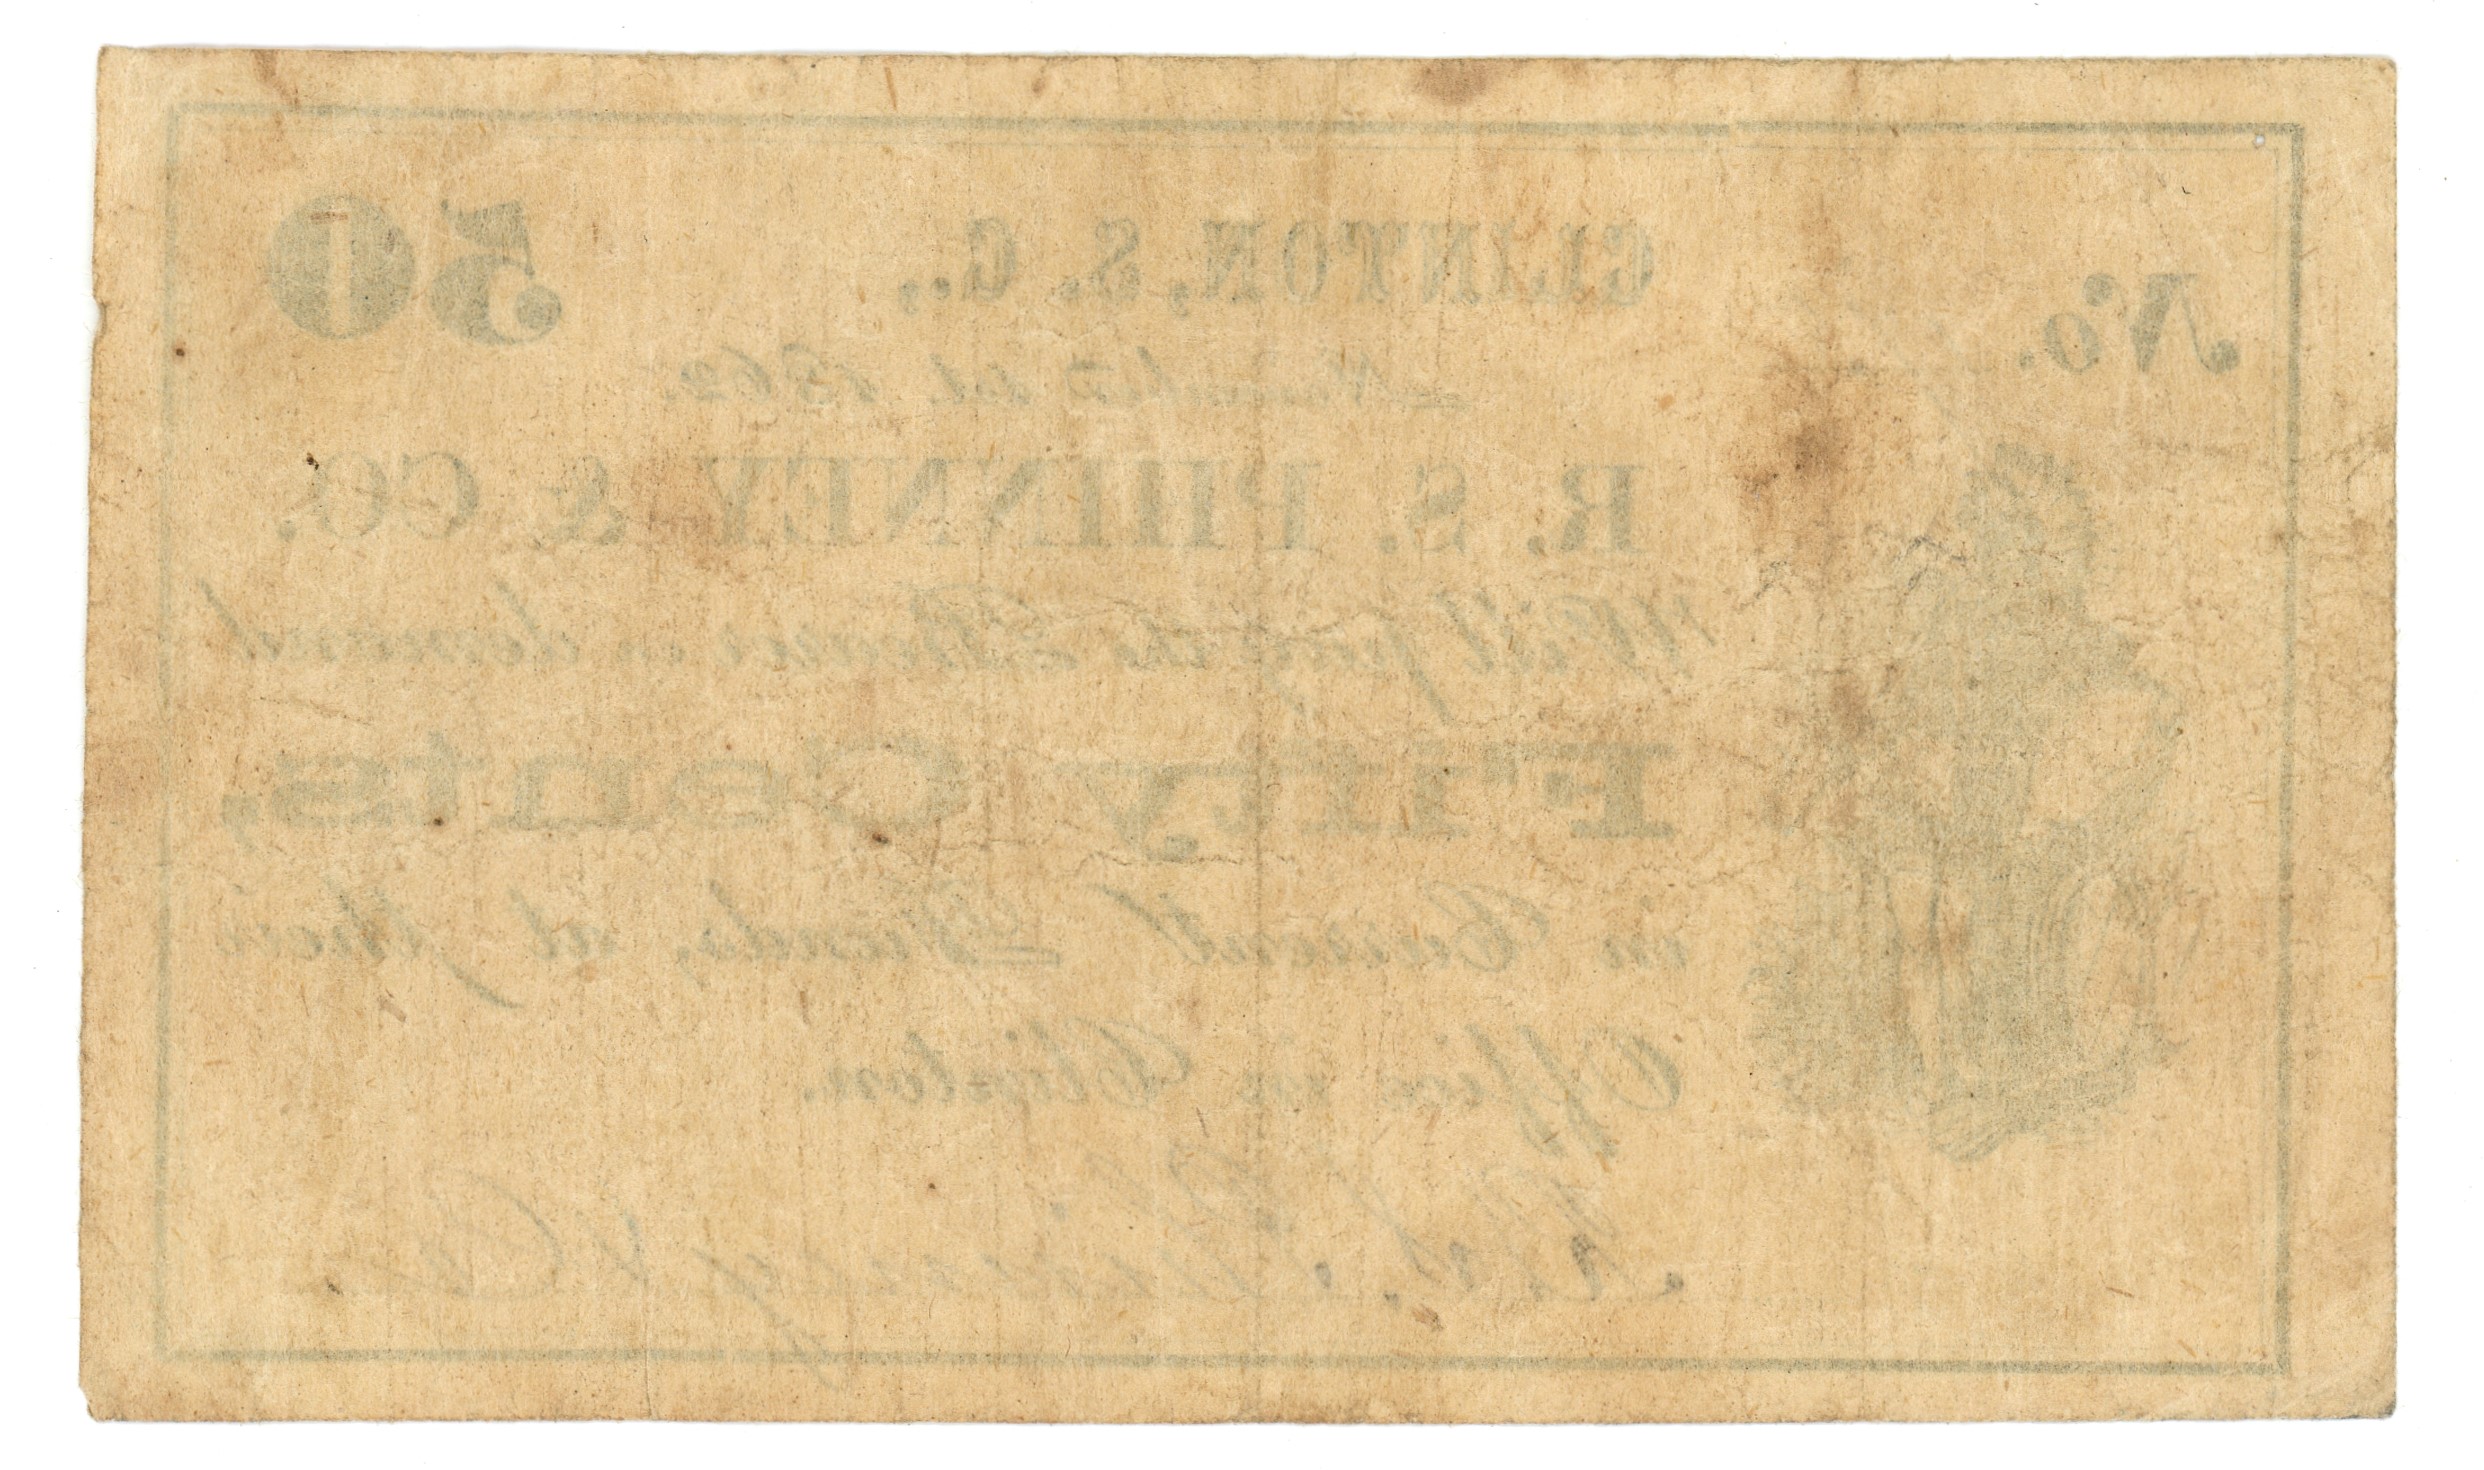 No.
CLINTON, S. C., 50
November 1st. 1862.
R. S. PHINNEY & CO.
Will pay the Bearer on demand
Fifty Cents,
in Current Funds, at their
Office in Clinton.
R. S. Phinney & Co